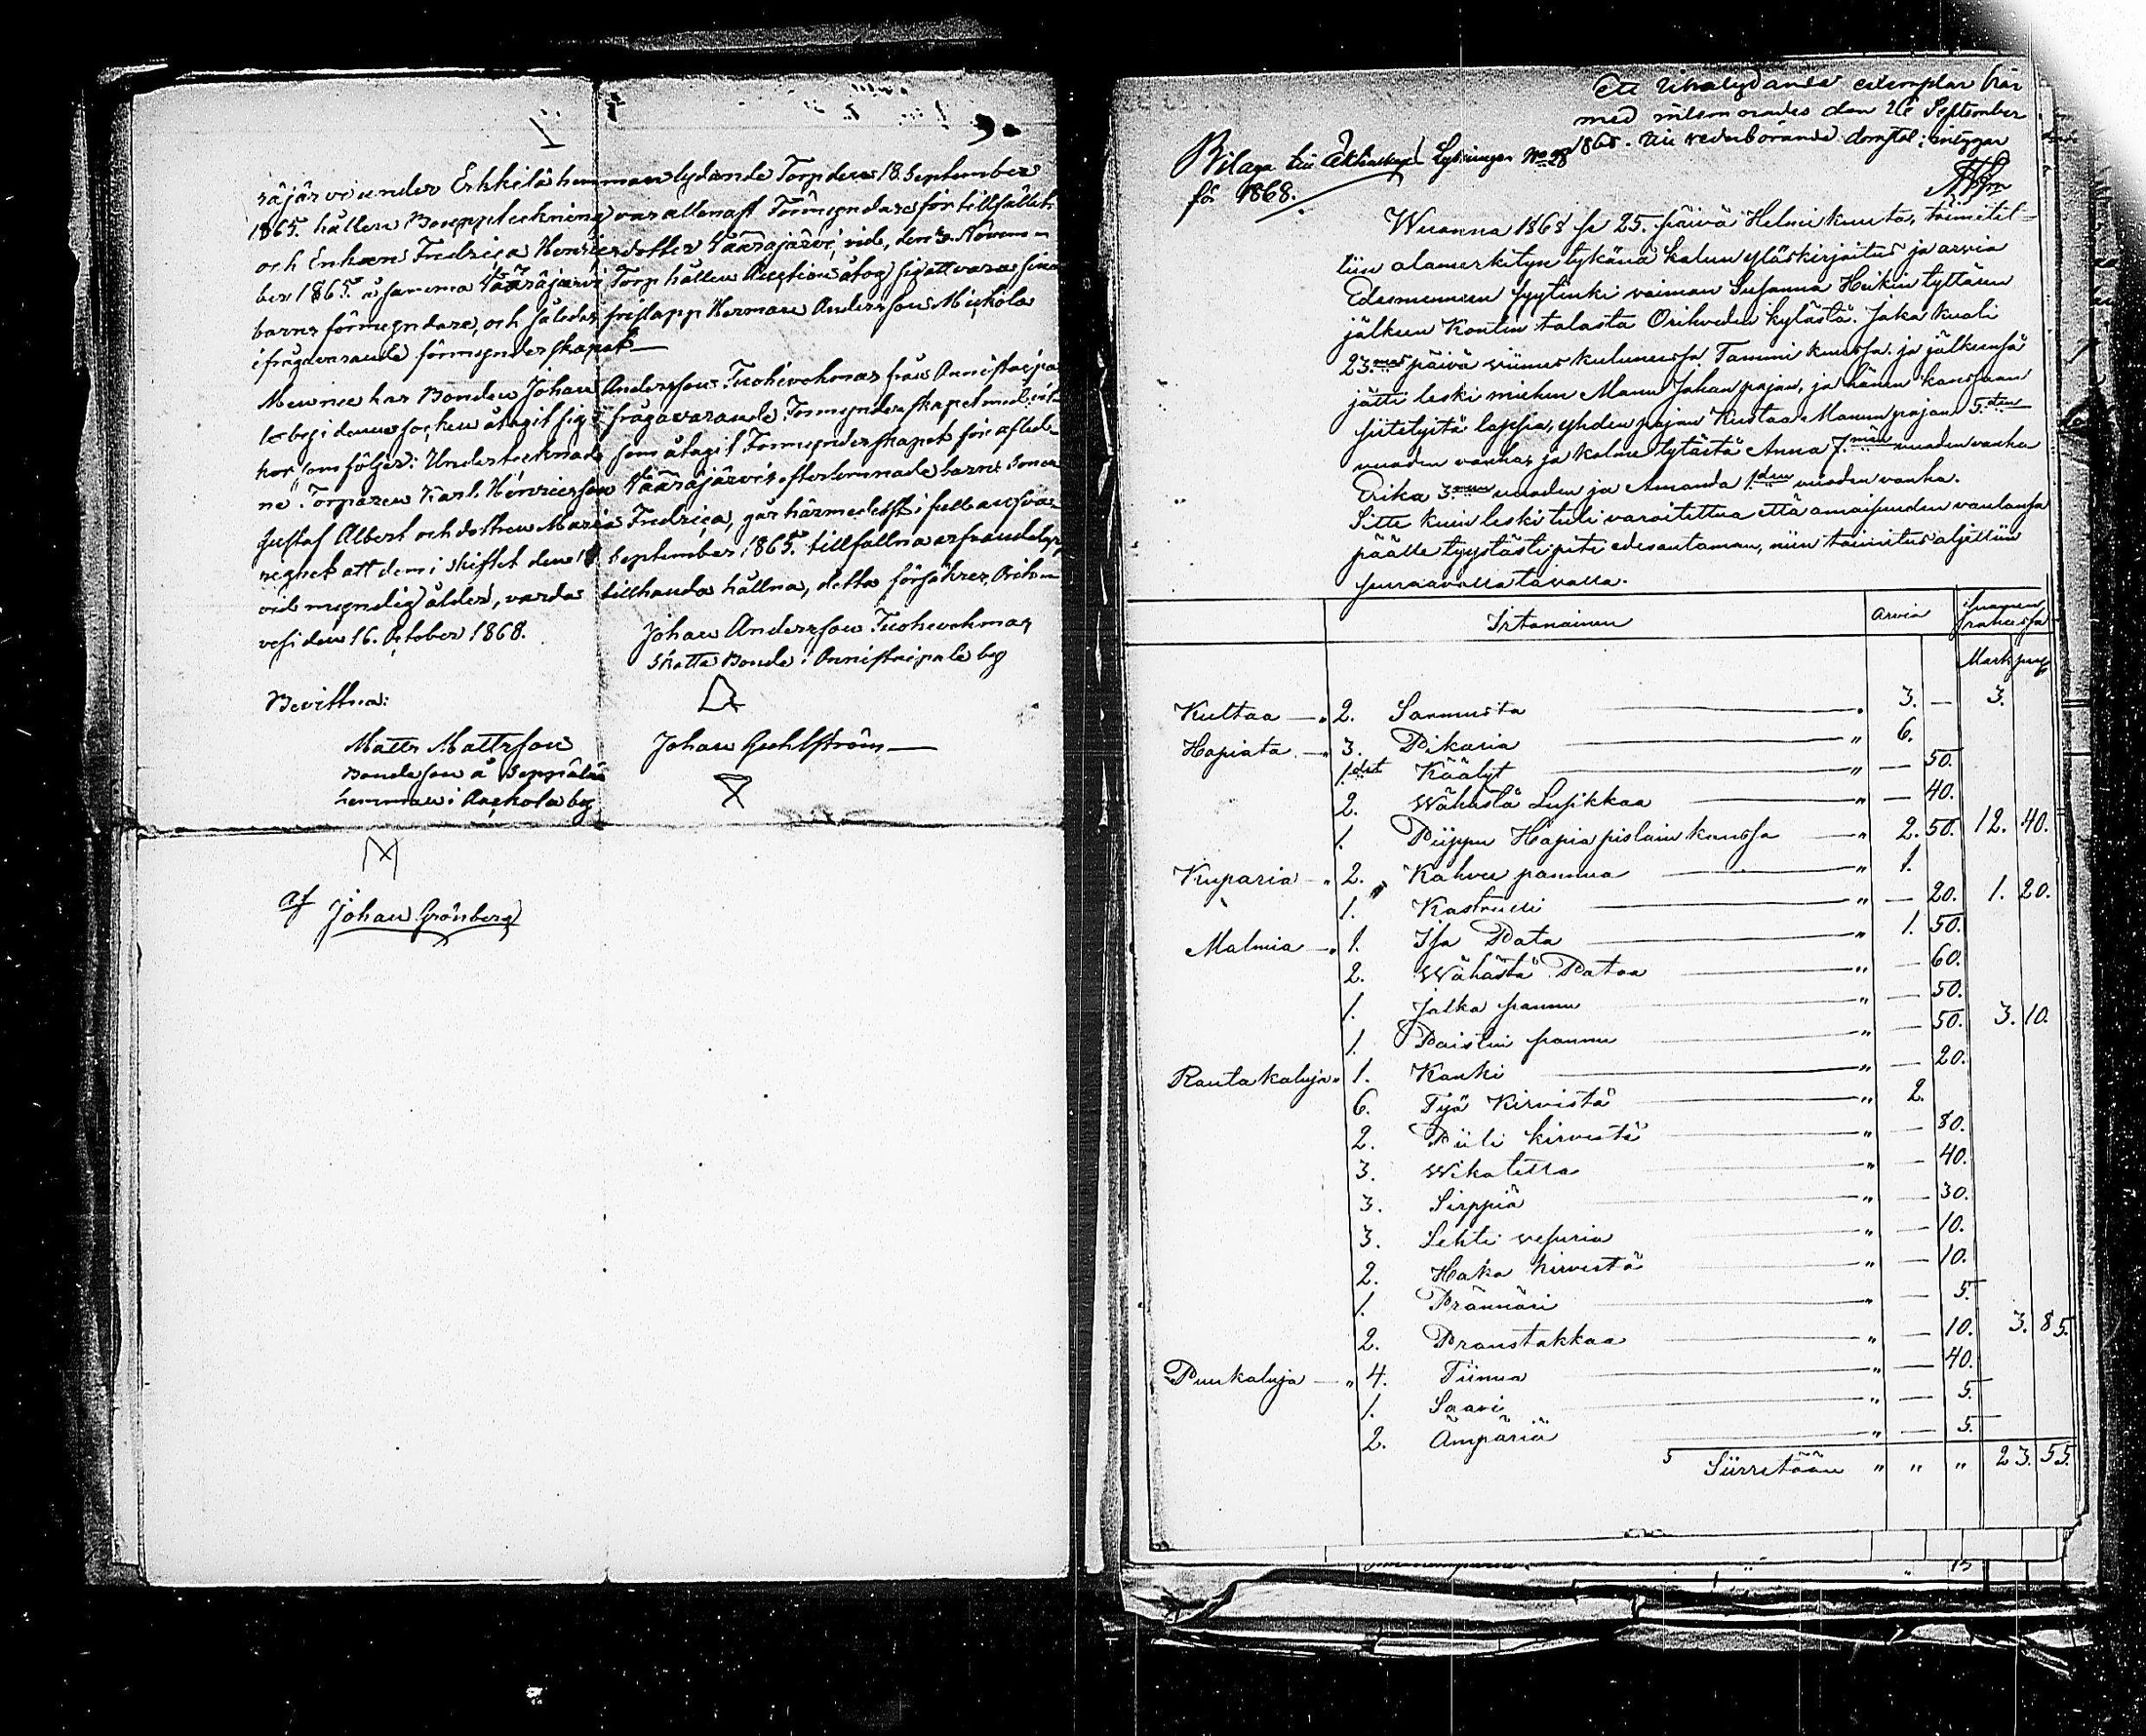 räjärvi under Erkkilä hemman lydande Torp den 18. September
1865. hållen Bouppteckning var allenast Förmyndare för tillfället
och Enkan Fredrica Henricsdotter Vääräjärvi, vid, den 3. Novem-
ber 1865. å samma Vääräjärvi Torp hållen Auction åtog sig att vara sina
barns förmyndare, och således fristapp Herman Andersson Mickola
ifrågavarande förmynderskapet
Men nu har Bonden Johan Andersson Tuohivehmas från Onnistaipa
le by i denna socken åtagit sig ifrågavarande Formynderskapet med
som följer: Undertecknad som åtagit Formynderskapet för afled-
ne Torparen Karl Henricsson Vääräjärvis efterlemnade barns Sonen
Gustaf Albert och dottren Maria Fredrica, går härmedelst i full ansva-
righet att dem i skiftet den 18 September 1865. tillfallna arfvandelar
vid myndig ålder, varda tillhanda hållna, detta försäkrer. Orih-
vesi den 16. October 1868.
Johan Andersson Tuohivehmas
Skatte Bonde i Onnistaipale by
Bevittna:
Matts Mattsson
Bondeson å Seppälä
hemman i by
Johan Gehlström
af Johan Grönberg
Ett likalydande exemplar här
med inlemnades den 26 September
1868. till vederbörande domstol; intygar
Bilaga till Lysningen No 28
för 1868.
Wuonna 1868 se 25. päivä Helmi kuusta, toimitet-
tiin alamerkityn tykänä kalun yläskirjoitus ja arvio
Edesmennen syytinki vaiman Susanna Heikin tyttären
jälkeen Kontin talosta Orihveden kylästä. Joka kuoli
23:mas päivä viimes kuluneessa Tammi kuussa. ja jälkeensä
jätti leski miehen Manu Johan pojan, ja hänen kanssaan
siitetyitä lapsia, yhden pojan Kustaa Manun pojan 5:den
vuoden vanhas ja kolme tytästä Anna 7.män vuoden vanha
Erika 3:men vuoden ja Amanda 1.den vuoden vanha.
Sitte kuin leski tuli varoitettua että omaisuuden vaulansa
päälle tyystästi pitä edesantaman, niin toimitus aljettiin
seuraavalla tavalla.
Irtanainen Arvio Suomen rahassa
Mark peng
Kultaa — " 2. Sormusta " 3. — 3.
Hopiata — " 3. Pikaria " 6.
1.det Käälyt " — 50.
2. Wähästä Lusikkaa " — 40.
1. Piippu Hopia pislain kanssa " 2. 50. 12. 40.
Kuparia " 2. " Kahvee pannua " 1.
1. Kastrulli " — 20. 1. 20.
Malmia — " 1. Isa Pata " 1. 50.
2. Wähästä Pataa " — 60.
1. Jalka pannu " — 50.
1. Paistin pannu " — 50. 3. 10.
Rauta kaluja " 1. Kanki " — 20.
6. Työ Kirvistä " 2.
2. Piili kirvestä " — 80.
3. Wikatetta " — 40.
3. Sirppiä " — 30.
3. Lehti vesuria " — 10.
2. Haka kirvestä " — 10.
1. Prännäri " — 5.
2. Pranstakkaa " — 10. 3. 85.
Puukaluja — " 4. Tiinua " — 40.
1. Saavi " — 5.
2. Ämpäriä " — 5.
5 Siirretään " " " 23. 55.